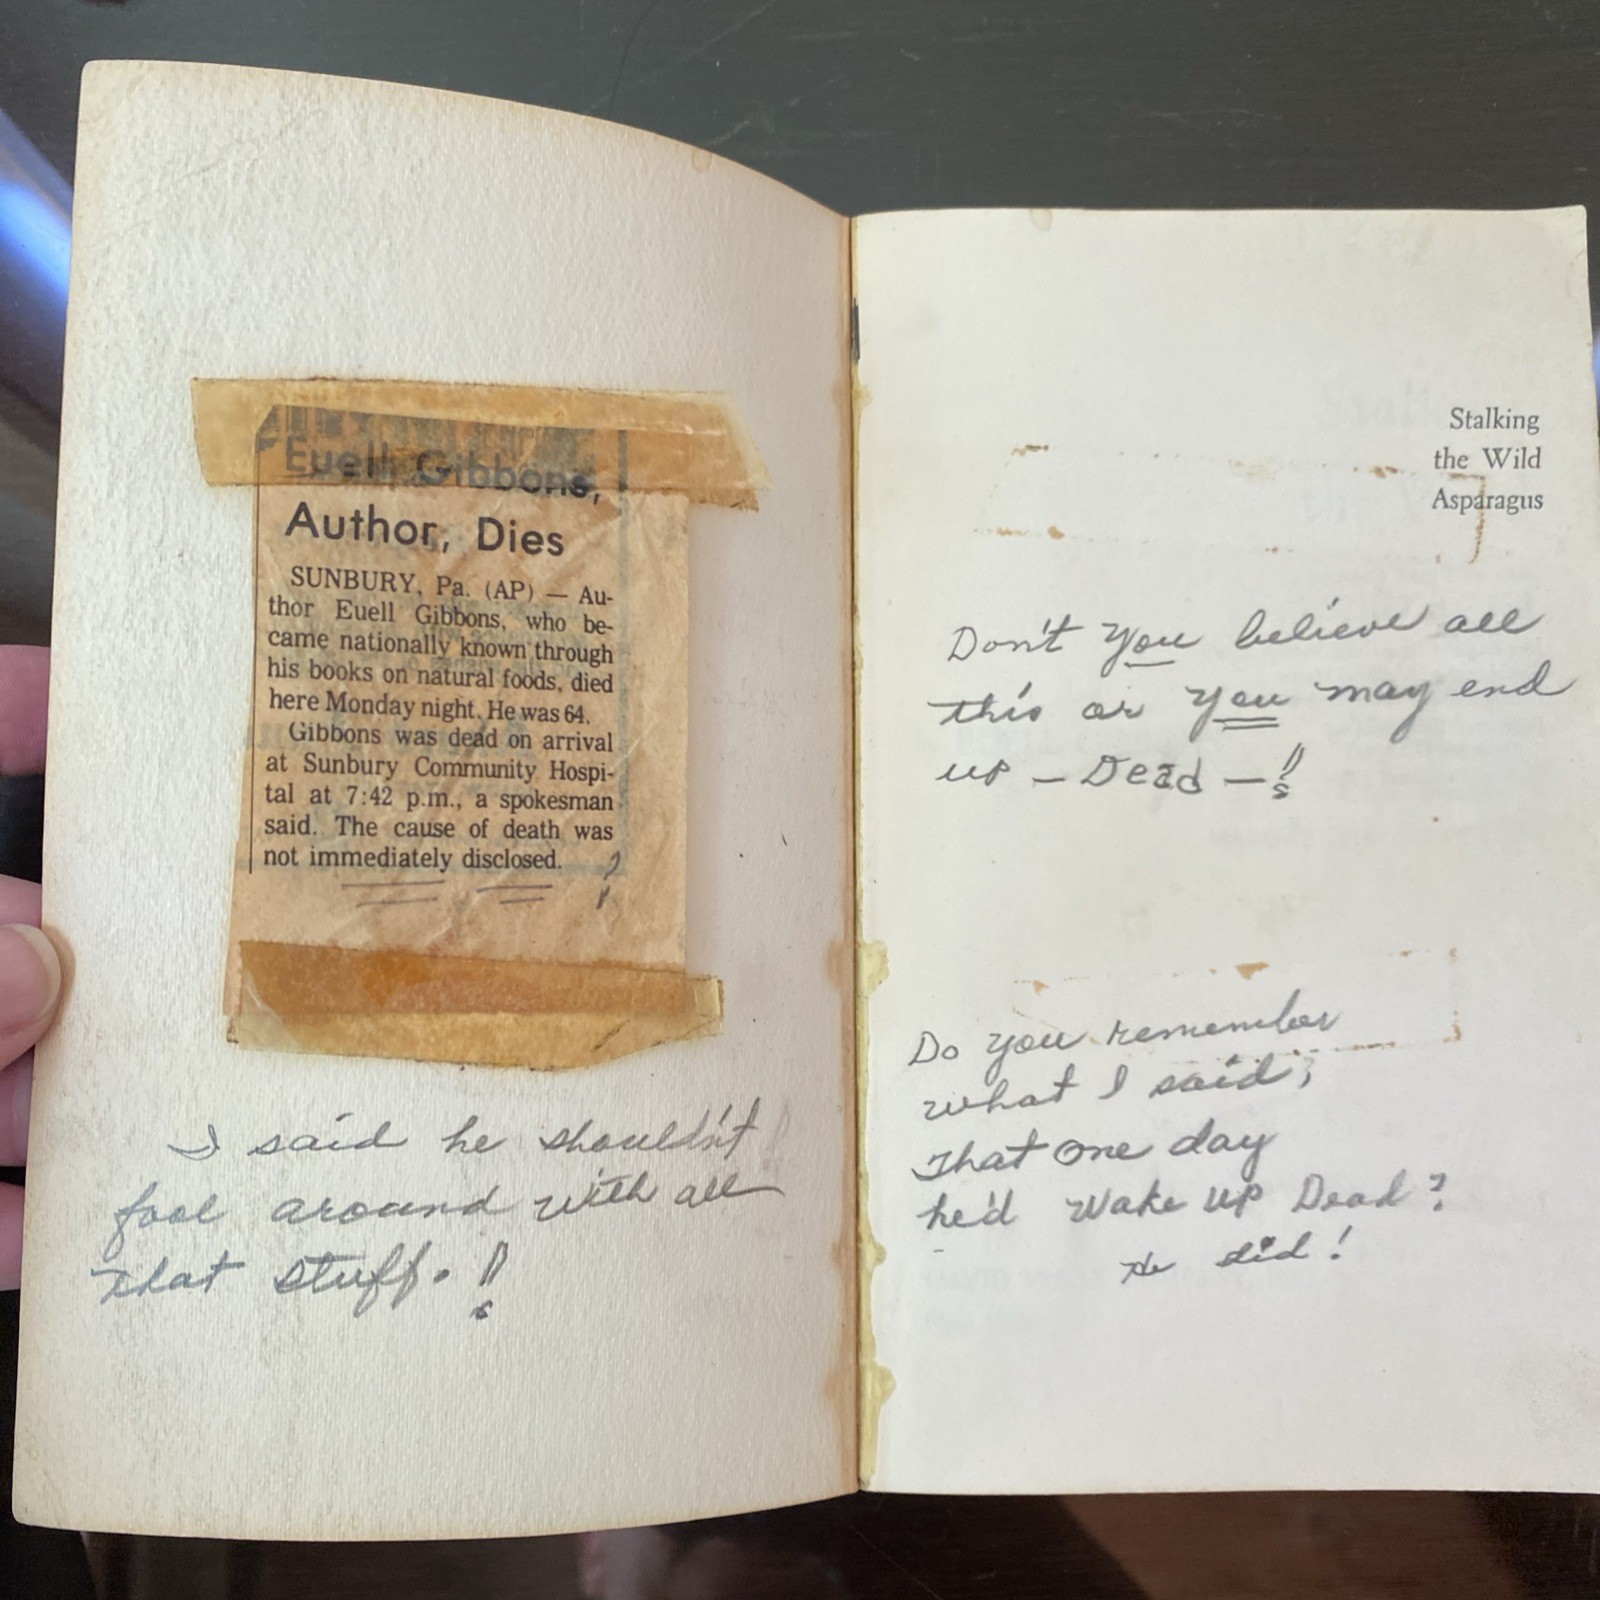 Euell Gibbons,
Author, Dies
SUNBURY, Pa. (AP) — Au-
thor Euell Gibbons, who be-
came nationally known through
his books on natural foods, died
here Monday night. He was 64.
Gibbons was dead on arrival
at Sunbury Community Hospi-
tal at 7:42 p.m., a spokesman
said. The cause of death was
not immediately disclosed.
?
I said he shouldn't
fool around with all
that stuff. !!
Stalking
the Wild
Asparagus
Don't you believe all
this or you may end
up — Dead — !!
Do you remember
what I said,
That one day
he'd wake up Dead?
He did!